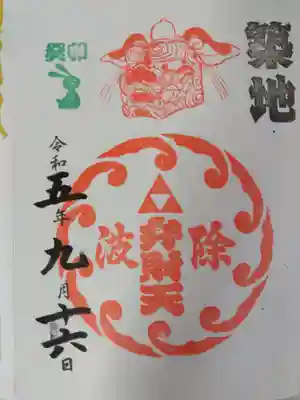 築地
波除
弁財天
癸卯
令和五年九月十六日